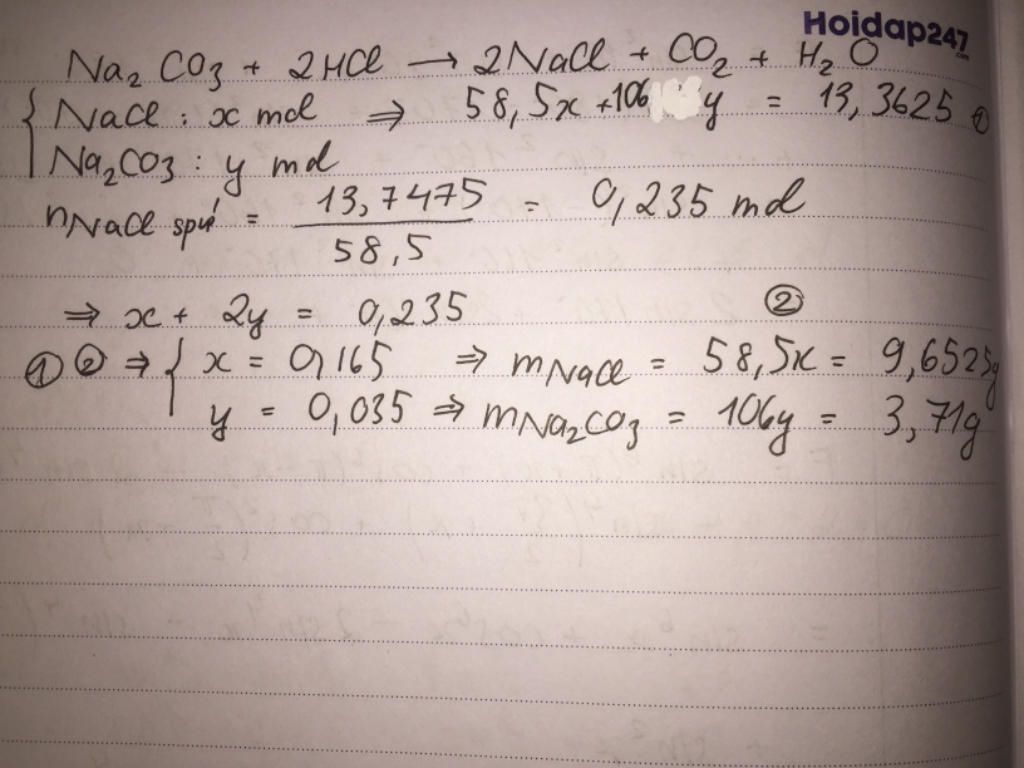 Hoidap247
.com
Na₂CO₃ + 2HCl → 2NaCl + CO₂ + H₂O
{ NaCl : x mol ⇒ 58,5x + 106y = 13,3625 ①
Na₂CO₃ : y mol
nNaCl spứ = 13,7475 / 58,5 = 0,235 mol
⇒ x + 2y = 0,235 ②
① ② ⇒ { x = 0,165 ⇒ mNaCl = 58,5x = 9,6525g
y = 0,035 ⇒ mNa₂CO₃ = 106y = 3,71g